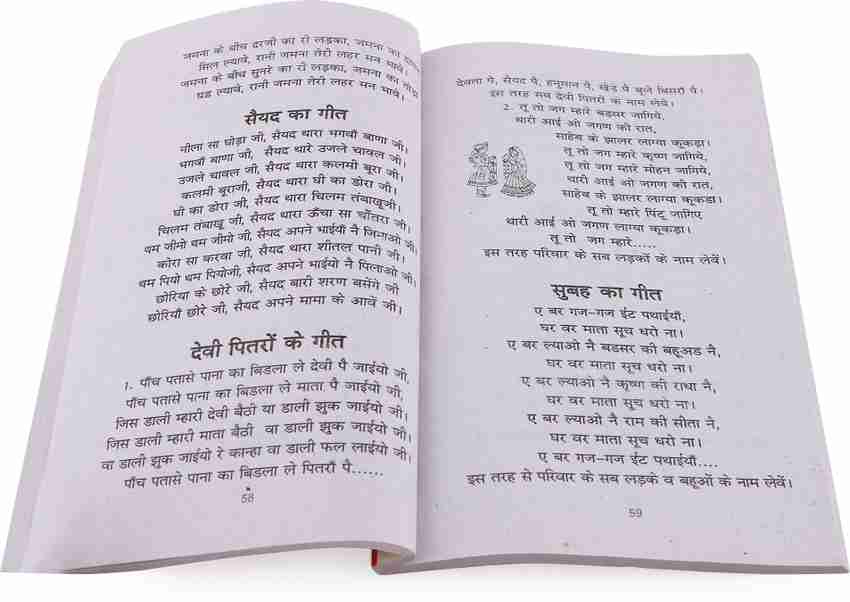 जमना के बीच दरजी का री लड़का, जमना का
सिल ल्यावे, रानी जमना तेरी लहर मन भावे।
जमना के बीच सुनरे का री लड़का, जमना का
घड़ ल्यावे, रानी जमना तेरी लहर मन भावे।
सैयद का गीत
नीला सा घोड़ा जी, सैयद थारा भगवाँ बाणा जी।
भगवाँ बाणा जी, सैयद थारे उजले चावल जी।
उजले चावल जी, सैयद थारा कलमी बूरा जी।
कलमी बूराजी, सैयद थारा घी का डोरा जी।
घी का डोरा जी, सैयद थारा चिलम तंबाखूजी।
चिलम तंबाखू जी, सैयद थारा ऊँचा सा चौंतरा जी।
थम जीमो थम जीमो जी, सैयद अपने भाईयाँ नै जिमाओ जी।
कोरा सा करवा जी, सैयद थारा शीतल पानी जी।
थम पियो थम पियोजी, सैयद अपने भाईयो नै पिलाओ जी।
छोरिया के छोरे जी, सैयद थारी शरण बसेंगे जी
छोरियाँ छोरे जी, सैयद अपने मामा के आवें जी।
देवी पितरों के गीत
1. पाँच पतासे पाना का बिडला ले देवी पै जाईयो जी,
पाँच पतासे पाना का बिडला ले माता पै जाईयो जी,
जिस डाली म्हारी देवी बैठी या डाली झुक जाईयो जी।
जिस डाली म्हारी माता बैठी वा डाली झुक जाईयो जी।
वा डाली झुक जाईयो रे कान्हा वा डाली फल लाईयो जी।
पाँच पतासे पाना का बिडला ले पितराँ पै......
58
देवता पे, सैयद पै, हनुमान पै, खेड़े पै बूजे बिसरों पै।
इस तरह सब देवी पितरों के नाम लेवें।
2. तू तो जग म्हारे बडवर जागिये,
थारी आई ओ जगण की रात,
साहेब के झालर लाग्या कूकड़ा।
तू तो जग म्हारे कृष्ण जागिये,
तू तो जग म्हारे मोहन जागिये,
थारी आई ओ जगण की रात,
साहेब के झालर लाग्या कूकड़ा।
तू तो जग म्हारे पिंटू जागिए
थारी आई ओ जगण लाग्या कूकड़ा।
तू तो जग म्हारे.....
इस तरह परिवार के सब लड़कों के नाम लेवें।
सुबह का गीत
ए बर गज-गज ईट पथाईयाँ,
घर वर माता सूच धरो ना।
ए बर ल्याओ नै बडसर की बहूअड नै,
घर वर माता सूच धरो ना।
ए बर ल्याओ नै कृष्णा की राधा नै,
घर वर माता सूच धरो ना।
ए बर ल्याओ नै राम की सीता नै,
घर वर माता सूच धरो ना।
ए बर गज-गज ईट पथाईयाँ....
इस तरह से परिवार के सब लड़के व बहूओं के नाम लेवें।
59